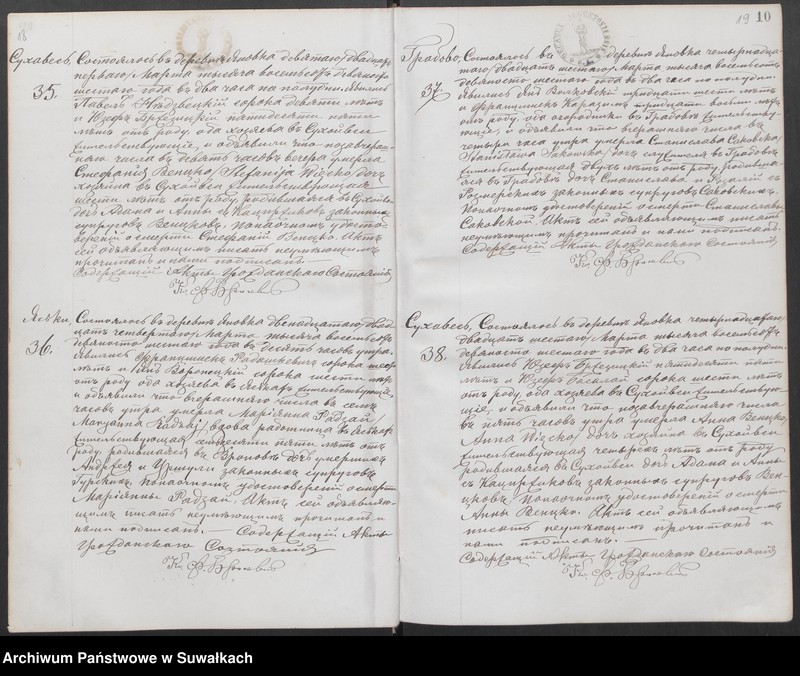 18
Сухавесь,
35.
Состоялось въ деревнѣ Яновка девятаго/двадцать
перваго/ Марта тысяча восемьсотъ девяносто
шестаго года въ два часа по полудни. Явились
Павелъ сорока девяти лѣтъ
и Юзефъ пятидесяти пяти
лѣтъ отъ роду, оба хозяева въ Сухойвси
жительствующіе, и объявили что позавчераш-
няго числа въ девять часовъ вечера умерла
Стефанія Венцко /Stefanija Więcko/ дочь
хозяина въ Сухойвси жительствующая
шести лѣтъ отъ роду, родившаяся въ Сухойвси
дочь Адама и Анны съ законныхъ
супруговъ Венцковъ. Поναочномъ удосто-
вѣреніи о смерти Стефаніи Венцко. Актъ
сей объявляющимъ писать неумѣющимъ
прочитанъ и нами подписанъ.
Содержащій Акты Гражданскаго Состоянія
Яски,
36.
Состоялось въ деревнѣ Яновка двенадцатаго/двад-
цать четвертаго/ Марта тысяча восемьсотъ
девяносто шестаго года въ десять часовъ утра.
Явились Францишекъ сорока шести
лѣтъ и сорока шести лѣтъ
отъ роду оба хозяева въ Яскахъ жительствующіе
и объявили что вчерашняго числа въ семь
часовъ утра умерла Маріянна Радзай/
Maryanna Radzaj/, вдова работница въ Яскахъ
жительствующая шестьдесяти пяти лѣтъ отъ
роду, родившаяся въ дочь умершихъ
Андрея и Уршули законныхъ супруговъ
удостовѣреніи о смерти
Маріянны Радзай. Актъ сей объявляю-
щимъ писать неумѣющимъ прочитанъ и
нами подписанъ. Содержащій Акты
Гражданскаго Состоянія
19 10
Грабово,
37.
Состоялось въ деревнѣ Яновка четырнадца-
таго/двадцать шестаго/ Марта тысяча восемьсотъ
девяносто шестаго года въ два часа по полудни.
Явились Янъ Волковскій тридцати шести лѣтъ
и Францишекъ тридцати восьми лѣтъ
отъ роду, оба огородники въ Грабовѣ жительству-
ющіе, и объявили что вчерашняго числа въ
четыре часа утра умерла Станислава Саковска/
Stanisława Sakowska/, дочь въ Грабовѣ
жительствующая двухъ лѣтъ отъ роду, родивша-
яся въ Грабовѣ дочь Станислава и Розаліи съ
законныхъ супруговъ Саковскихъ.
удостовѣреніи о смерти Станиславы
Саковской. Актъ сей объявляющимъ писать
неумѣющимъ прочитанъ и нами подписанъ.
Содержащій Акты Гражданскаго Состоянія
Сухавесь,
38.
Состоялось въ деревнѣ Яновка четырнадцатаго/
двадцать шестаго/ Марта тысяча восемьсотъ
девяносто шестаго года въ два часа по полудни.
Явились Юзефъ пятидесяти пяти
лѣтъ и Юзефъ Басалай сорока шести лѣтъ
отъ роду, оба хозяева въ Сухойвси жительствую-
щіе, и объявили что позавчерашняго числа
въ пять часовъ утра умерла Анна Венцко/
Anna Więcko/ дочь хозяина въ Сухойвси
жительствующая четырехъ лѣтъ отъ роду
родившаяся въ Сухойвси дочь Адама и Анны
съ законныхъ супруговъ Вен-
цковъ. удостовѣреніи о смерти
Анны Венцко. Актъ сей объявляющимъ
писать неумѣющимъ прочитанъ и
нами подписанъ.
Содержащій Акты Гражданскаго Состоянія
Archiwum Państwowe w Suwałkach